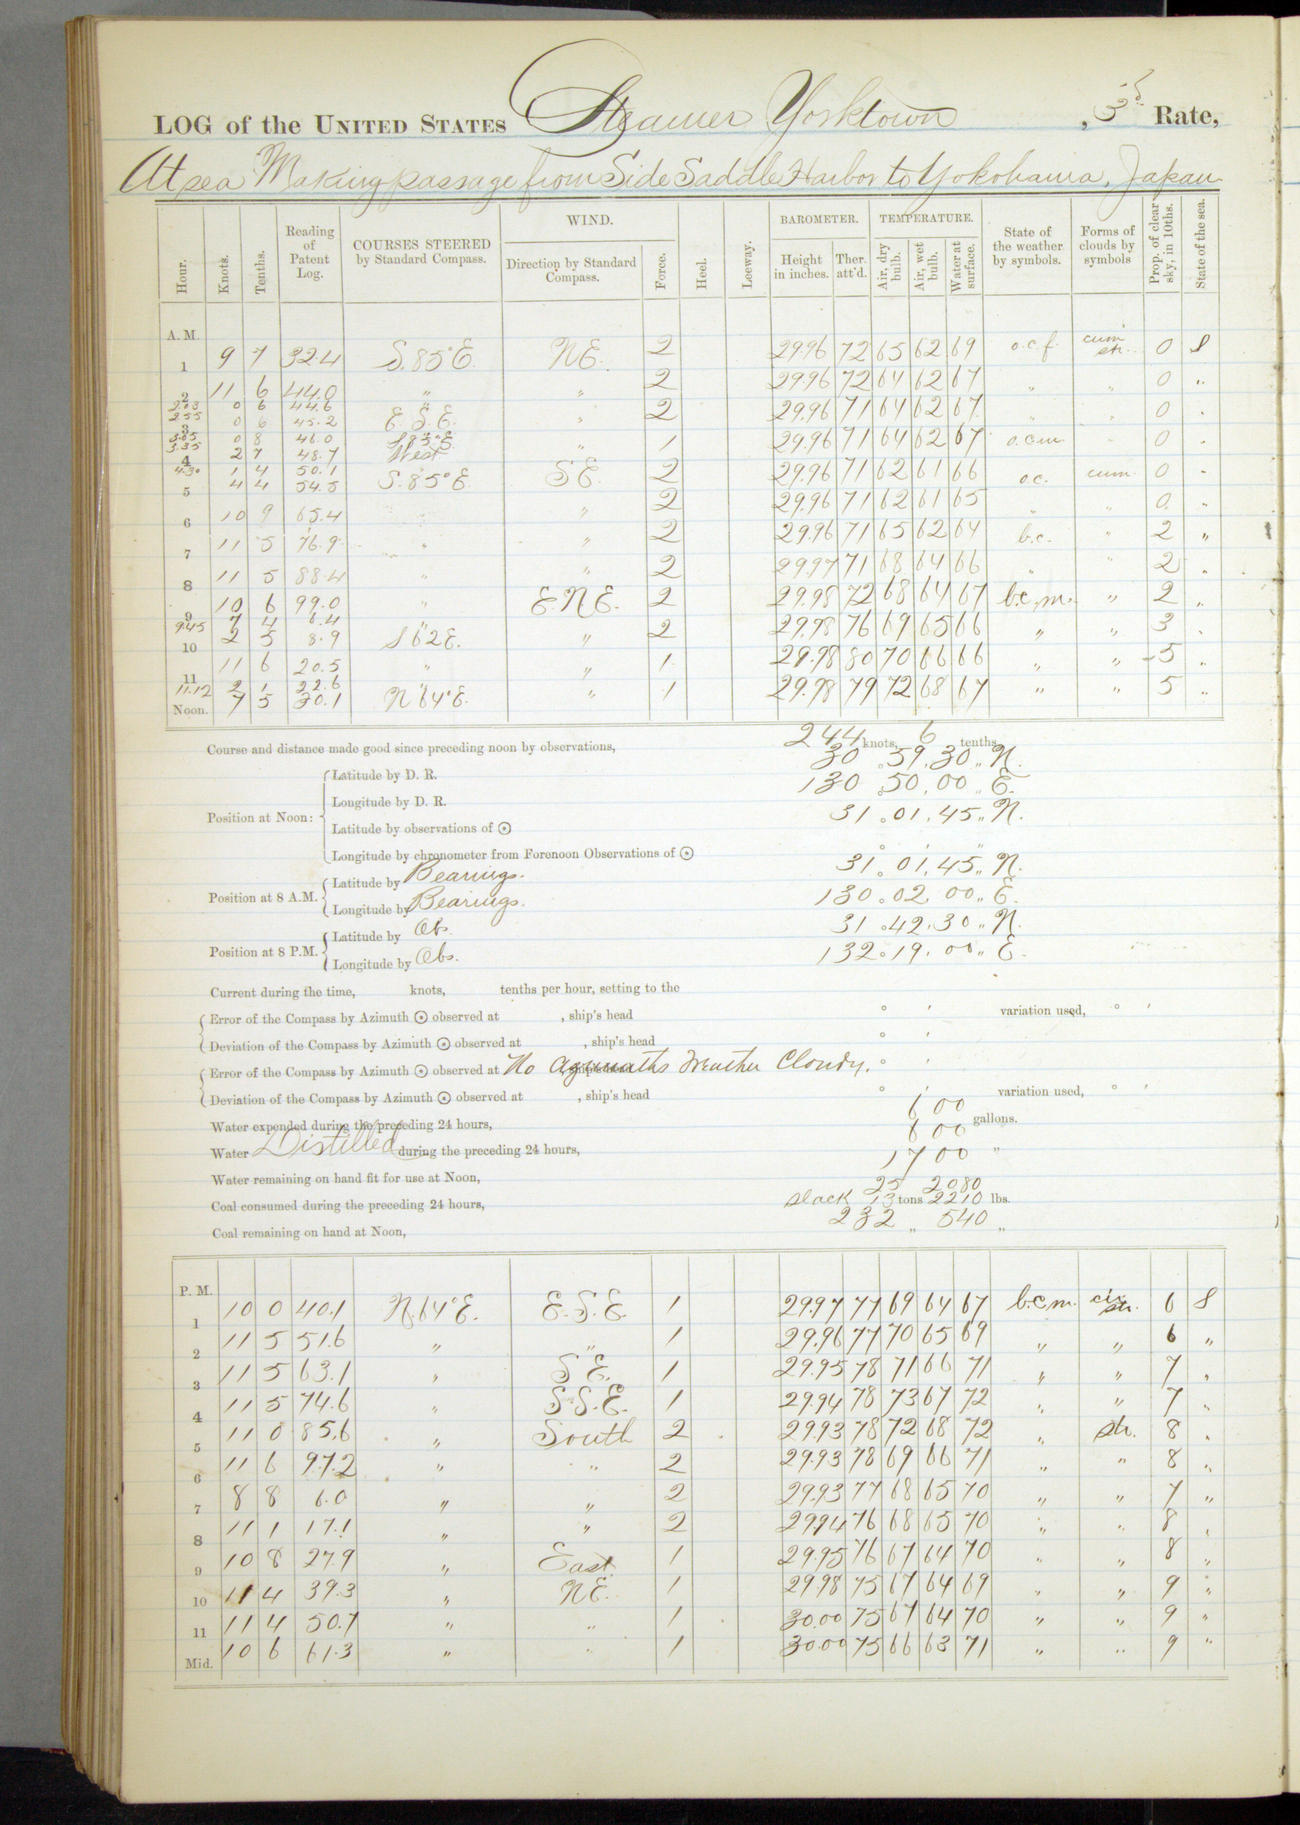 LOG of the UNITED STATES Steamer Yorktown, 3d Rate,
At sea Making passage from Side Saddle Harbor to Yokohama, Japan
Hour. Knots. Tenths. Reading of Patent Log. COURSES STEERED by Standard Compass. WIND. Direction by Standard Compass. Force. Heel. Leeway. BAROMETER. Height in inches. Ther. att'd. TEMPERATURE. Air, dry bulb. Air, wet bulb. Water at surface. State of the weather by symbols. Forms of clouds by symbols Prop. of clear sky, in 10ths. State of the sea.
A. M.
1 9 7 32.4 S.85°E. NE. 2 29.96 72 65 62 69 o.c.f. cum str. 0 S
2 11 6 44.0 " " 2 29.96 72 64 62 67 " " 0 "
2.03 0 6 44.6 "
2.55 0 6 45.2 E.S.E. " 2 29.96 71 64 62 67 " " 0 "
3
3.05 0 8 46.0 S85°E.
3.35 2 7 48.7 West " 1 29.96 71 64 62 67 o.c.m. " 0 "
4
4.30 1 4 50.1 "
5 4 4 54.5 S.85°E. SE. 2 29.96 71 62 61 66 o.c. cum. 0 "
6 10 9 65.4 " " 2 29.96 71 62 61 65 " " 0 "
7 11 5 76.9 " " 2 29.96 71 65 62 64 b.c. " 2 "
8 11 5 88.4 " " 2 29.97 71 68 64 66 " " 2 "
9 10 6 99.0 " E.N.E. 2 29.98 72 68 64 67 b.c.m. " 2 "
9.45 7 4 6.4 "
10 2 5 8.9 S62E. " 2 29.98 76 69 65 66 " " 3 "
11 11 6 20.5 " " 1 29.98 80 70 66 66 " " 5 "
11.12 2 1 22.6 "
Noon. 7 5 30.1 N64°E. " 1 29.98 79 72 68 67 " " 5 "
Course and distance made good since preceding noon by observations, 244 knots, 6 tenths
Position at Noon: Latitude by D. R. 30 ° 59 ' 30 " N.
Longitude by D. R. 130 ° 50 ' 00 " E.
Latitude by observations of ☉ 31 ° 01 ' 45 " N.
Longitude by chronometer from Forenoon Observations of ☉ ° ' "
Position at 8 A.M. Latitude by Bearings. 31 ° 01 ' 45 " N.
Longitude by Bearings. 130 ° 02 ' 00 " E.
Position at 8 P.M. Latitude by Obs. 31 ° 42 ' 30 " N.
Longitude by Obs. 132 ° 19 ' 00 " E.
Current during the time, knots, tenths per hour, setting to the
Error of the Compass by Azimuth ☉ observed at , ship's head ° ' variation used, ° '
Deviation of the Compass by Azimuth ☉ observed at , ship's head ° '
Error of the Compass by Azimuth ☉ observed at No Azimuths Weather Cloudy. ° '
Deviation of the Compass by Azimuth ☉ observed at , ship's head ° ' variation used, ° '
Water expended during the preceding 24 hours, 600 gallons.
Water Distilled during the preceding 24 hours, 600 "
Water remaining on hand fit for use at Noon, 1700
Coal consumed during the preceding 24 hours, 25 2080
slack 13 tons 2210 lbs.
Coal remaining on hand at Noon, 232 " 540 "
P. M.
1 10 0 40.1 N.64°E. E.S.E. 1 29.97 77 69 64 67 b.c.m. cir. str. 6 S
2 11 5 51.6 " " 1 29.96 77 70 65 69 " " 6 "
3 11 5 63.1 " S.E. 1 29.95 78 71 66 71 " " 7 "
4 11 5 74.6 " S.S.E. 1 29.94 78 73 67 72 " " 7 "
5 11 0 85.6 " South 2 29.93 78 72 68 72 " str. 8 "
6 11 6 97.2 " " 2 29.93 78 69 66 71 " " 8 "
7 8 8 6.0 " " 2 29.93 77 68 65 70 " " 7 "
8 11 1 17.1 " " 2 29.94 76 68 65 70 " " 8 "
9 10 8 27.9 " East. 1 29.95 76 67 64 70 " " 8 "
10 11 4 39.3 " NE. 1 29.98 75 67 64 69 " " 9 "
11 11 4 50.7 " " 1 30.00 75 67 64 70 " " 9 "
Mid. 10 6 61.3 " " 1 30.00 75 66 63 71 " " 9 "